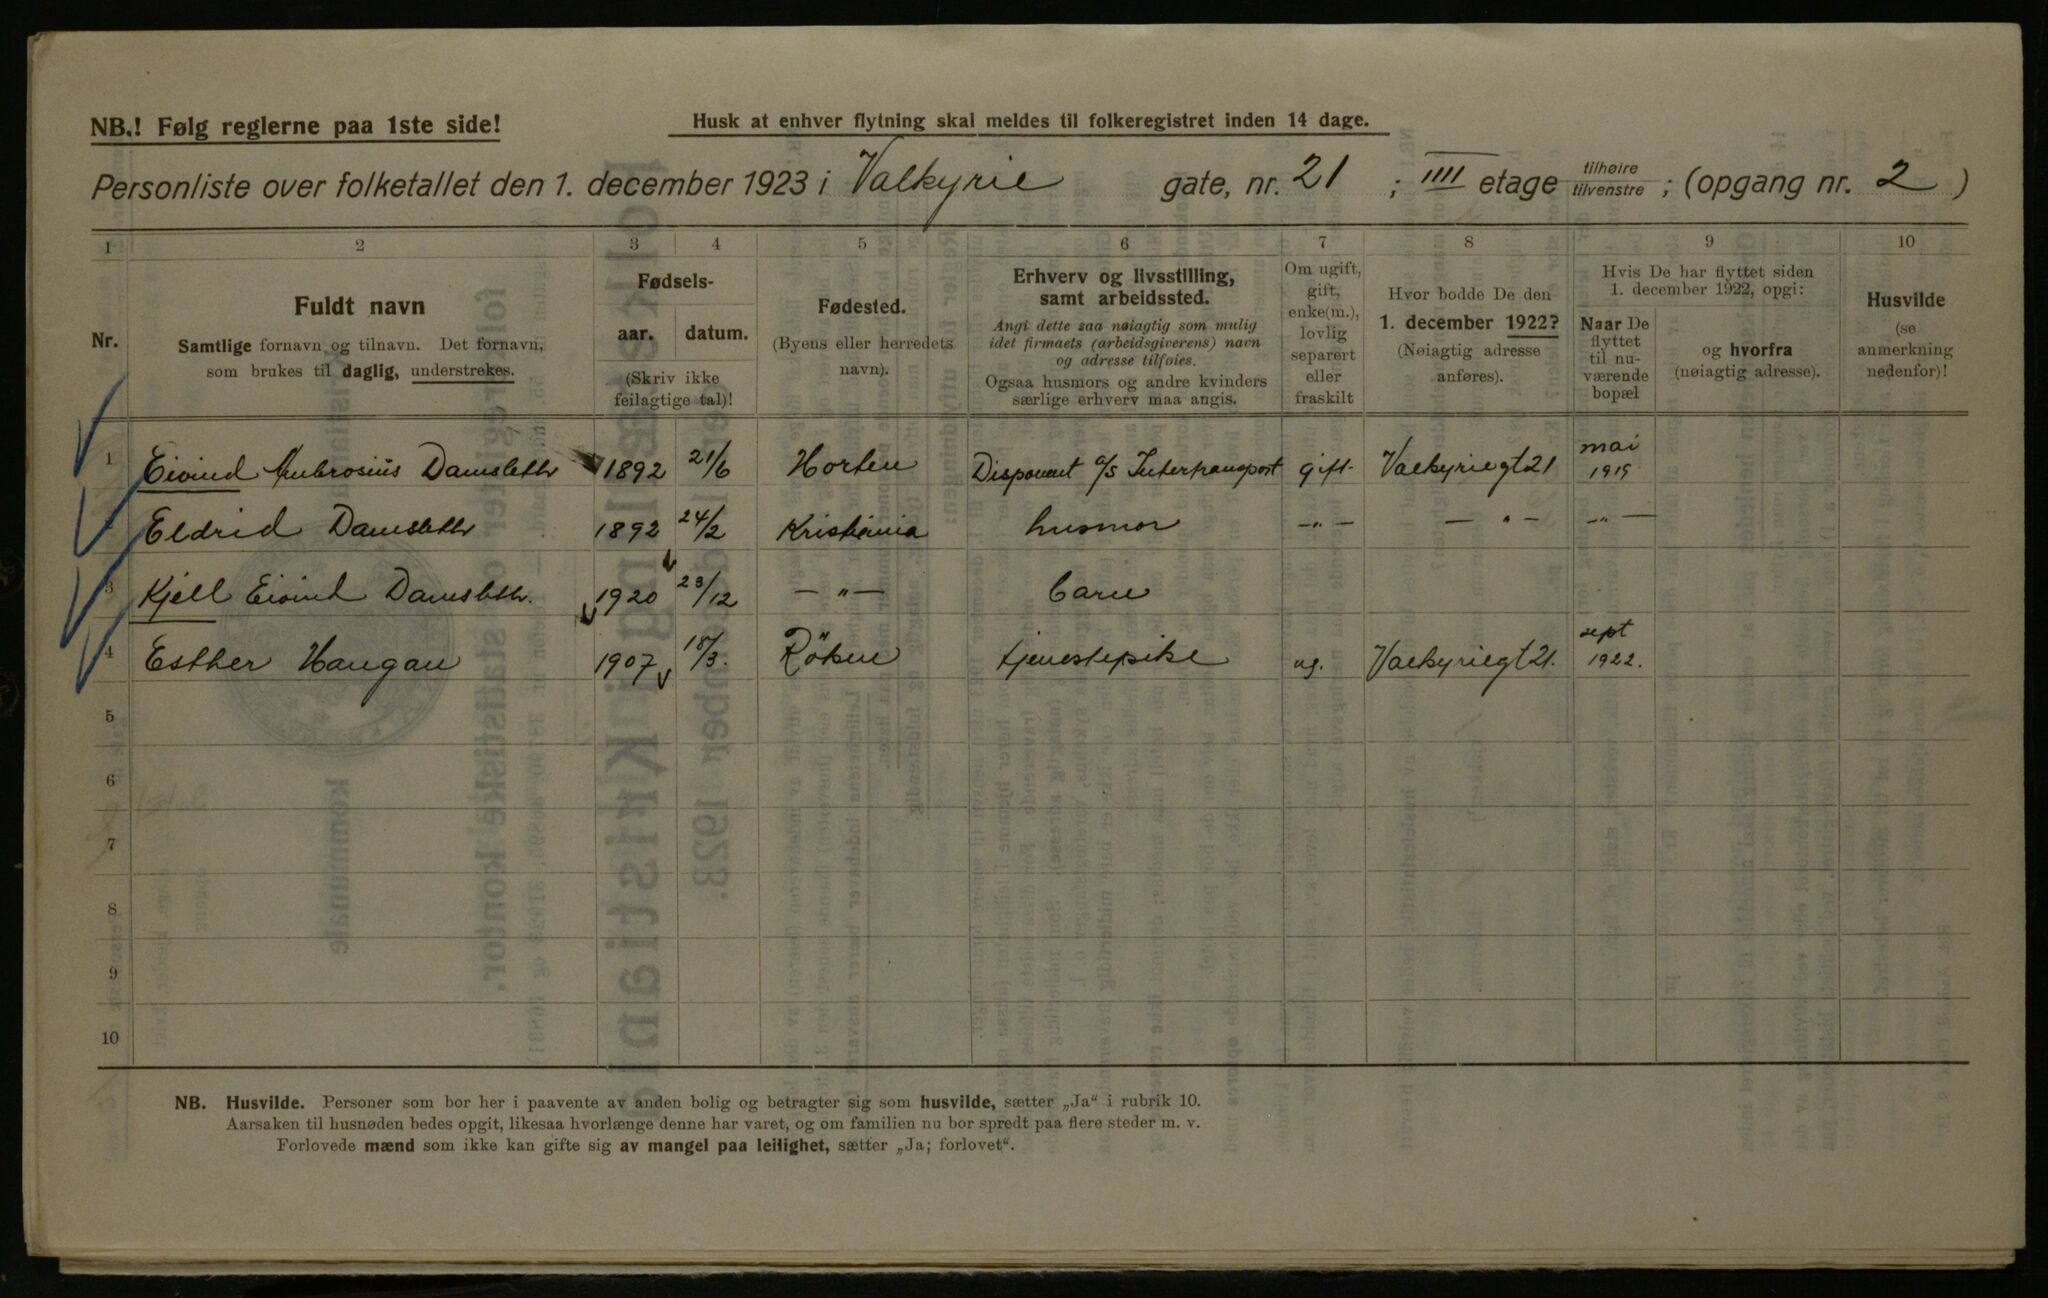 NB.! Følg reglerne paa 1ste side!
Husk at enhver flytning skal meldes til folkeregistret inden 14 dage.
Personliste over folketallet den 1. december 1923 i Valkyrie gate, nr. 21 ; IIII etage tilhøire tilvenstre ; (opgang nr. 2 )
1 2 3 4 5 6 7 8 9 10
Nr.
Fuldt navn
Samtlige fornavn og tilnavn. Det fornavn,
som brukes til daglig, understrekes.
Fødsels-
aar. datum.
(Skriv ikke
feilagtige tal)!
Fødested.
(Byens eller herredets
navn).
Erhverv og livsstilling,
samt arbeidssted.
Angi dette saa nøiagtig som mulig
idet firmaets (arbeidsgiverens) navn
og adresse tilføies.
Ogsaa husmors og andre kvinders
særlige erhverv maa angis.
Om ugift,
gift,
enke(m.),
lovlig
separert
eller
fraskilt
Hvor bodde De den
1. december 1922?
(Nøiagtig adresse
anføres).
Hvis De har flyttet siden
1. december 1922, opgi:
Naar De
flyttet
til nu-
værende
bopæl
og hvorfra
(nøiagtig adresse).
Husvilde
(se
anmerkning
nedenfor)!
1 Eivind Ambrosius Damsleth 1892 21/6 Horten Disponent a/s Intertransport gift Valkyriegt 21 mai 1919
Eldrid Damsleth 1892 24/2 Kristiania husmor —„— —„— —„—
3 Kjell Eivind Damsleth. 1920 23/12 —„— barn
4 Esther Haugan 1907 18/3. Röken tjenestepike ug. Valkyriegt 21. sept 1922.
5
6
7
8
9
10
NB. Husvilde. Personer som bor her i paavente av anden bolig og betragter sig som husvilde, sætter „Ja“ i rubrik 10.
Aarsaken til husnøden bedes opgit, likesaa hvorlænge denne har varet, og om familien nu bor spredt paa flere steder m. v.
Forlovede mænd som ikke kan gifte sig av mangel paa leilighet, sætter „Ja; forlovet“.